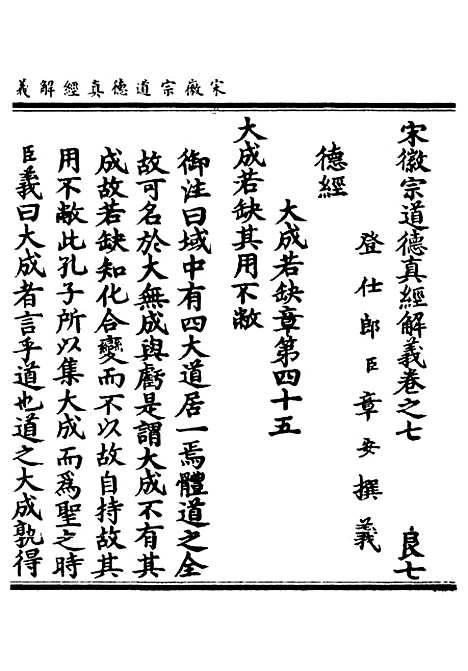 宋徽宗道德真經解義
宋徽宗道德真經解義卷之七 良七
登仕郎臣章安撰義
德經
大成若缺章第四十五
大成若缺其用不敝
御注曰域中有四大道居一焉體道之全
故可名於大無成與虧是謂大成不有其
成故若缺知化合變而不以故自持故其
用不敝此孔子所以集大成而爲聖之時
臣義曰大成者言乎道也道之大成孰得